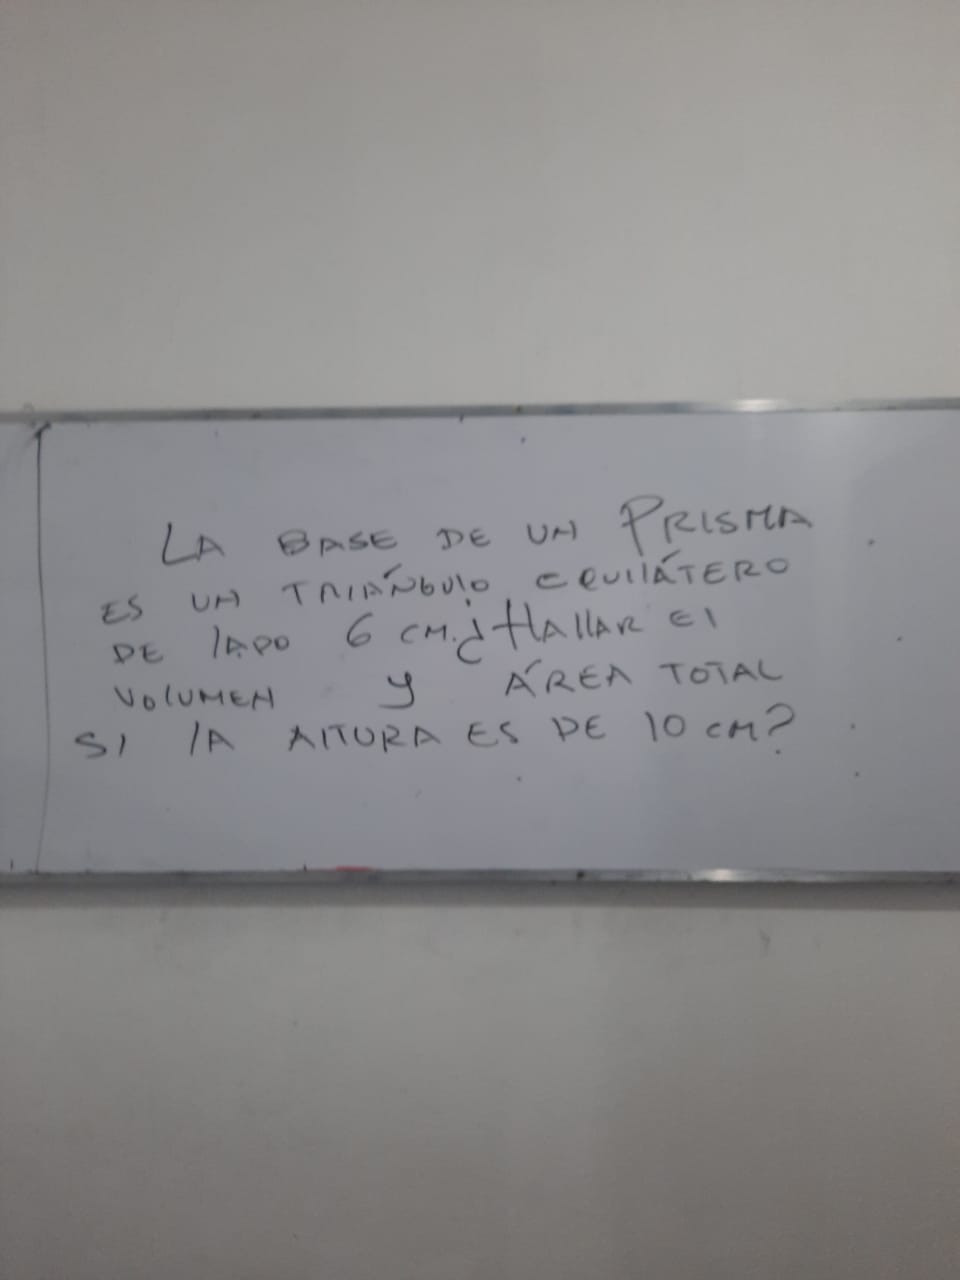 LA BASE DE UN PRISMA
ES UN TRIÁNGULO EQUILÁTERO
DE LADO 6 CM. ¿HALLAR EL
VOLUMEN Y ÁREA TOTAL
SI LA ALTURA ES DE 10 CM?